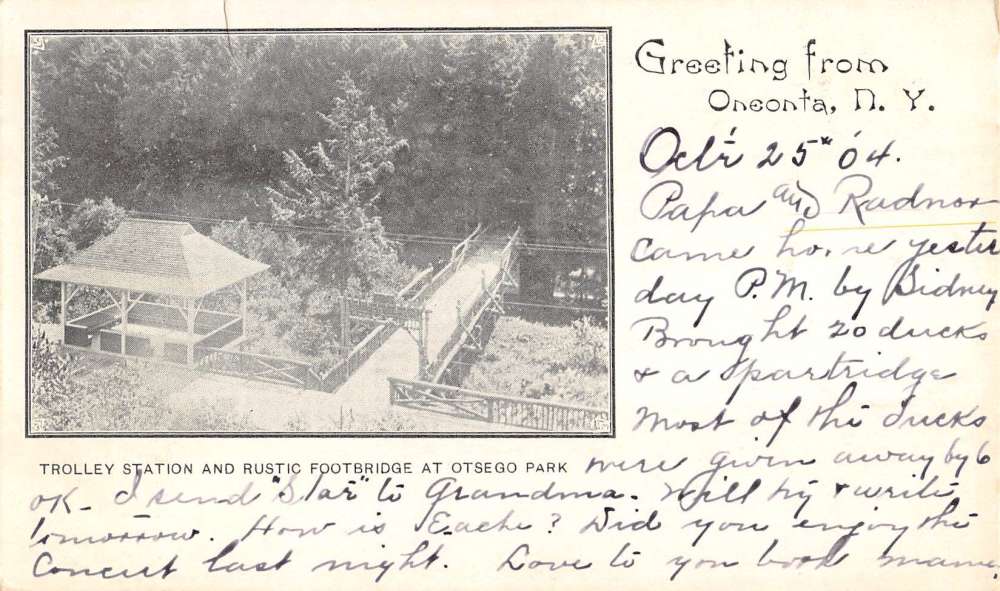 Greeting from
Oneonta, N. Y.
Oct'r 25" 04.
Papa and Radnor
came home yester
day P.M. by Sidney
Brought 20 ducks
& a partridge
Most of the ducks
TROLLEY STATION AND RUSTIC FOOTBRIDGE AT OTSEGO PARK
were given away by 6
OK_ I send "Star" to Grandma. Will try & write
tomorrow. How is Eache? Did you enjoy the
Concert last night. Love to you both mama.